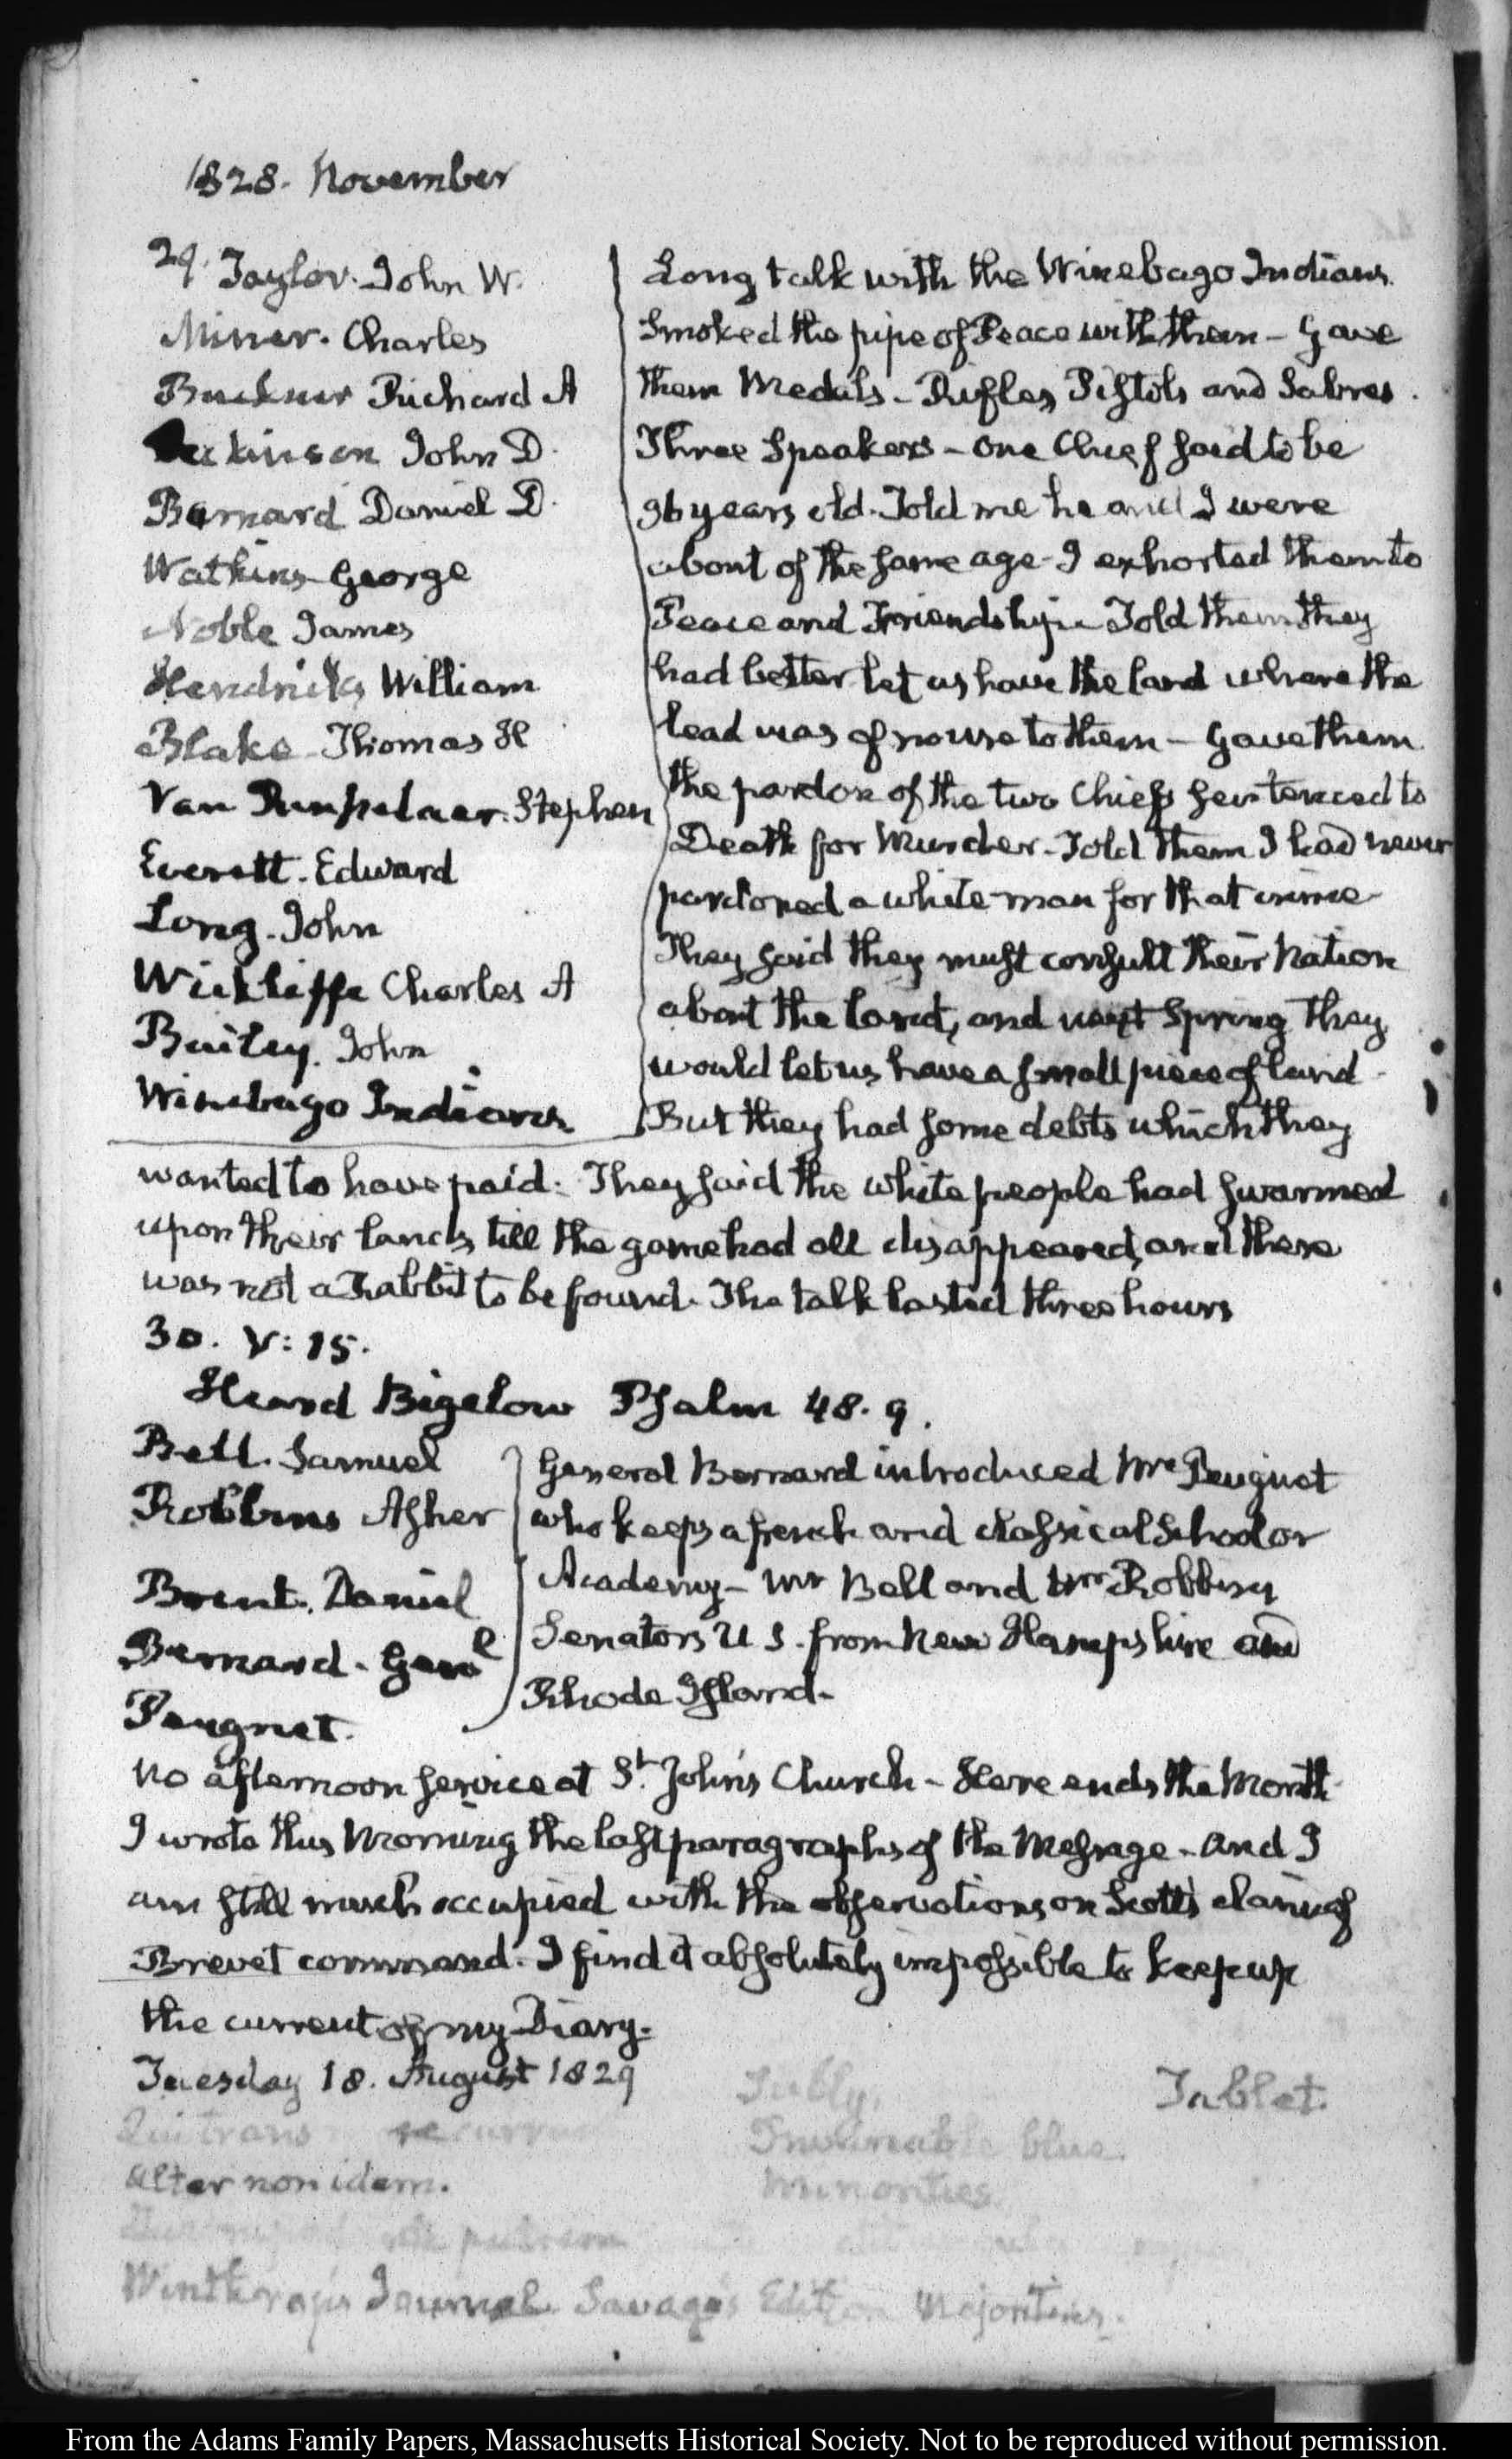 1828. November
29. Taylor. John W.
Miner. Charles
Buckner Richard A
Dickinson John D.
Barnard Daniel D.
Watkins George
Noble James
Hendricks William
Blake Thomas H
Van Rensselaer. Stephen
Everett. Edward
Long. John
Wickliffe Charles A
Bailey. John
Winebago Indians
Long talk with the Winebago Indians.
Smoked the pipe of Peace with them – Gave
them Medals – Rifles, Pistols and Sabres.
Three Speakers – One Chief said to be
96 years old. Told me he and I were
about of the same age – I exhorted them to
Peace and Friendship – Told them they
had better let us have the land where the
lead was of no use to them – Gave them
the pardon of the two Chiefs sentenced to
Death for Murder – Told them I had never
pardoned a white man for that crime –
They said they must consult their Nation
about the land, and next Spring they
would let us have a small piece of land –
But they had some debts which they
wanted to have paid. They said the white people had swarmed
upon their lands, till the game had all disappeared, and there
was not a Rabbit to be found. The talk lasted three hours
30. V: 15.
Heard Bigelow Psalm 48. 9.
Bell. Samuel
Robbins Asher
Brent. Daniel
Bernard. Genl
Peugnet.
General Bernard introduced Mr Peugnet
who keeps a french and classical School or
Academy – Mr Bell and Mr Robbins
Senators U S. from New Hampshire and
Rhode Island.
No afternoon service at St. John's Church – Here ends the Month
I wrote this Morning the last paragraphs of the Message – and I
am still much occupied with the observations on Scott's claim of
Brevet command. I find it absolutely impossible to keep up
the current of my Diary.
Tuesday 18. August 1829
Tablet.
blue.
Alter non idem.
Minorities
Winthrop's Journal. Savage's Edition Majorities.